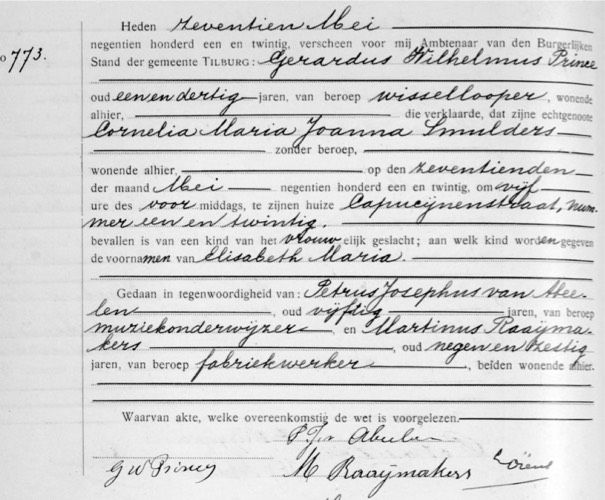 Heden zeventien Mei
No 773. negentien honderd een en twintig, verscheen voor mij Ambtenaar van den Burgerlijken
Stand der gemeente TILBURG: Gerardus Wilhelmus Prince
oud een en dertig jaren, van beroep wisselloper, wonende
alhier, die verklaarde, dat zijne echtgenoote
Cornelia Maria Joanna Smulders
zonder beroep,
wonende alhier, op den zeventienden
der maand Mei negentien honderd een en twintig, om vijf
ure des voor middags, te zijnen huize Capucijnenstraat, num-
mer een en twintig.
bevallen is van een kind van het vrouwelijk geslacht; aan welk kind worden gegeven
de voornamen van Elisabeth Maria.
Gedaan in tegenwoordigheid van: Petrus Josephus van Abee-
len, oud vijftig jaren, van beroep
muziekonderwijzer, en Martinus Raaijma-
kers, oud negen en zestig
jaren, van beroep fabriekwerker, beiden wonende alhier.
Waarvan akte, welke overeenkomstig de wet is voorgelezen.
G W Prince M Raaijmakers